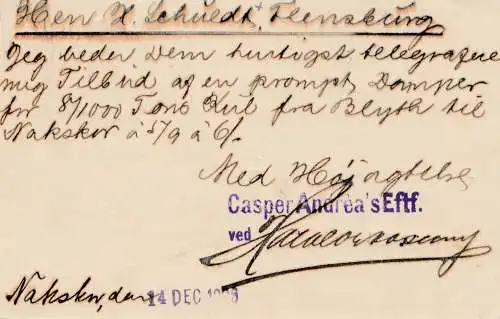 Herr H. Schuldt, Flensburg
Jeg beder Dem hurtigst telegrafere
mig Tilbud af en prompt Damper
for 8/1000 Tons Kul fra Blyth til
Nakskov à 5/9 à 6/-
Med Højagtelse
Casper Andréa's Eftf.
ved
Nakskov, den 14 DEC